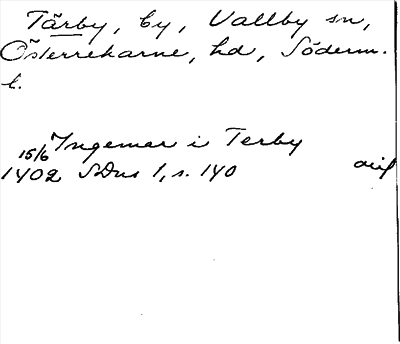 Tärby, by, Vallby sn,
Österrekarne, hd, Söderm.
l.
Ingemar i Terby
15/6
1402 SDns 1, s. 140 avskr